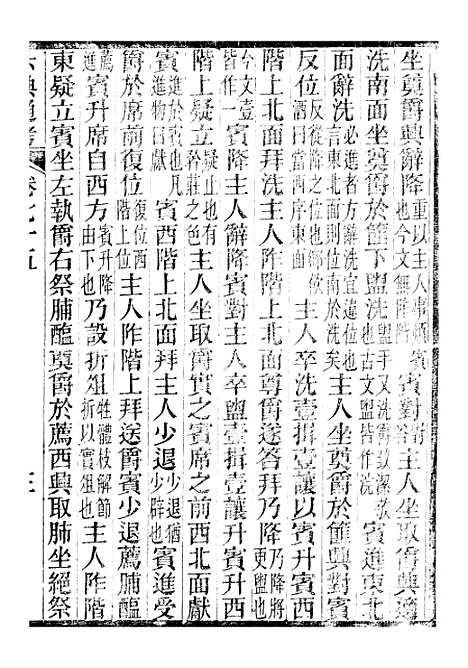 坐奠爵興辭降重以主人事煩賓也今文無降階賓對對答主人坐取爵興適
洗南面坐奠爵於篚下盥洗盥手又洗爵致潔敬也古文盥皆作浣賓進東北
面辭洗必進者方辭洗宜違位也言東北面則位南於洗矣主人坐奠爵於篚興對賓
反位反從降之位也鄉飲酒曰當西序東面主人卒洗壹揖壹讓以賓升賓西
階上北面拜洗主人阼階上北面奠爵遂答拜乃降乃降將更盥也
今文壹皆作一賓降主人辭降賓對主人卒盥壹揖壹讓升賓西
階上疑立疑止也有矜莊之色主人坐取爵實之賓席之前西北面獻
賓進於賓也凡進物曰獻賓西階上北面拜主人少退少退猶少辟也賓進受
爵於席前復位復位西階上位主人阼階上拜送爵賓少退薦脯醢
薦進賓升席自西方賓升降由下也乃設折俎牲體枝解節折以實俎也主人阼階
東疑立賓坐左執爵右祭脯醢奠爵於薦西興取肺坐絕祭
六典通考 卷七十五 三